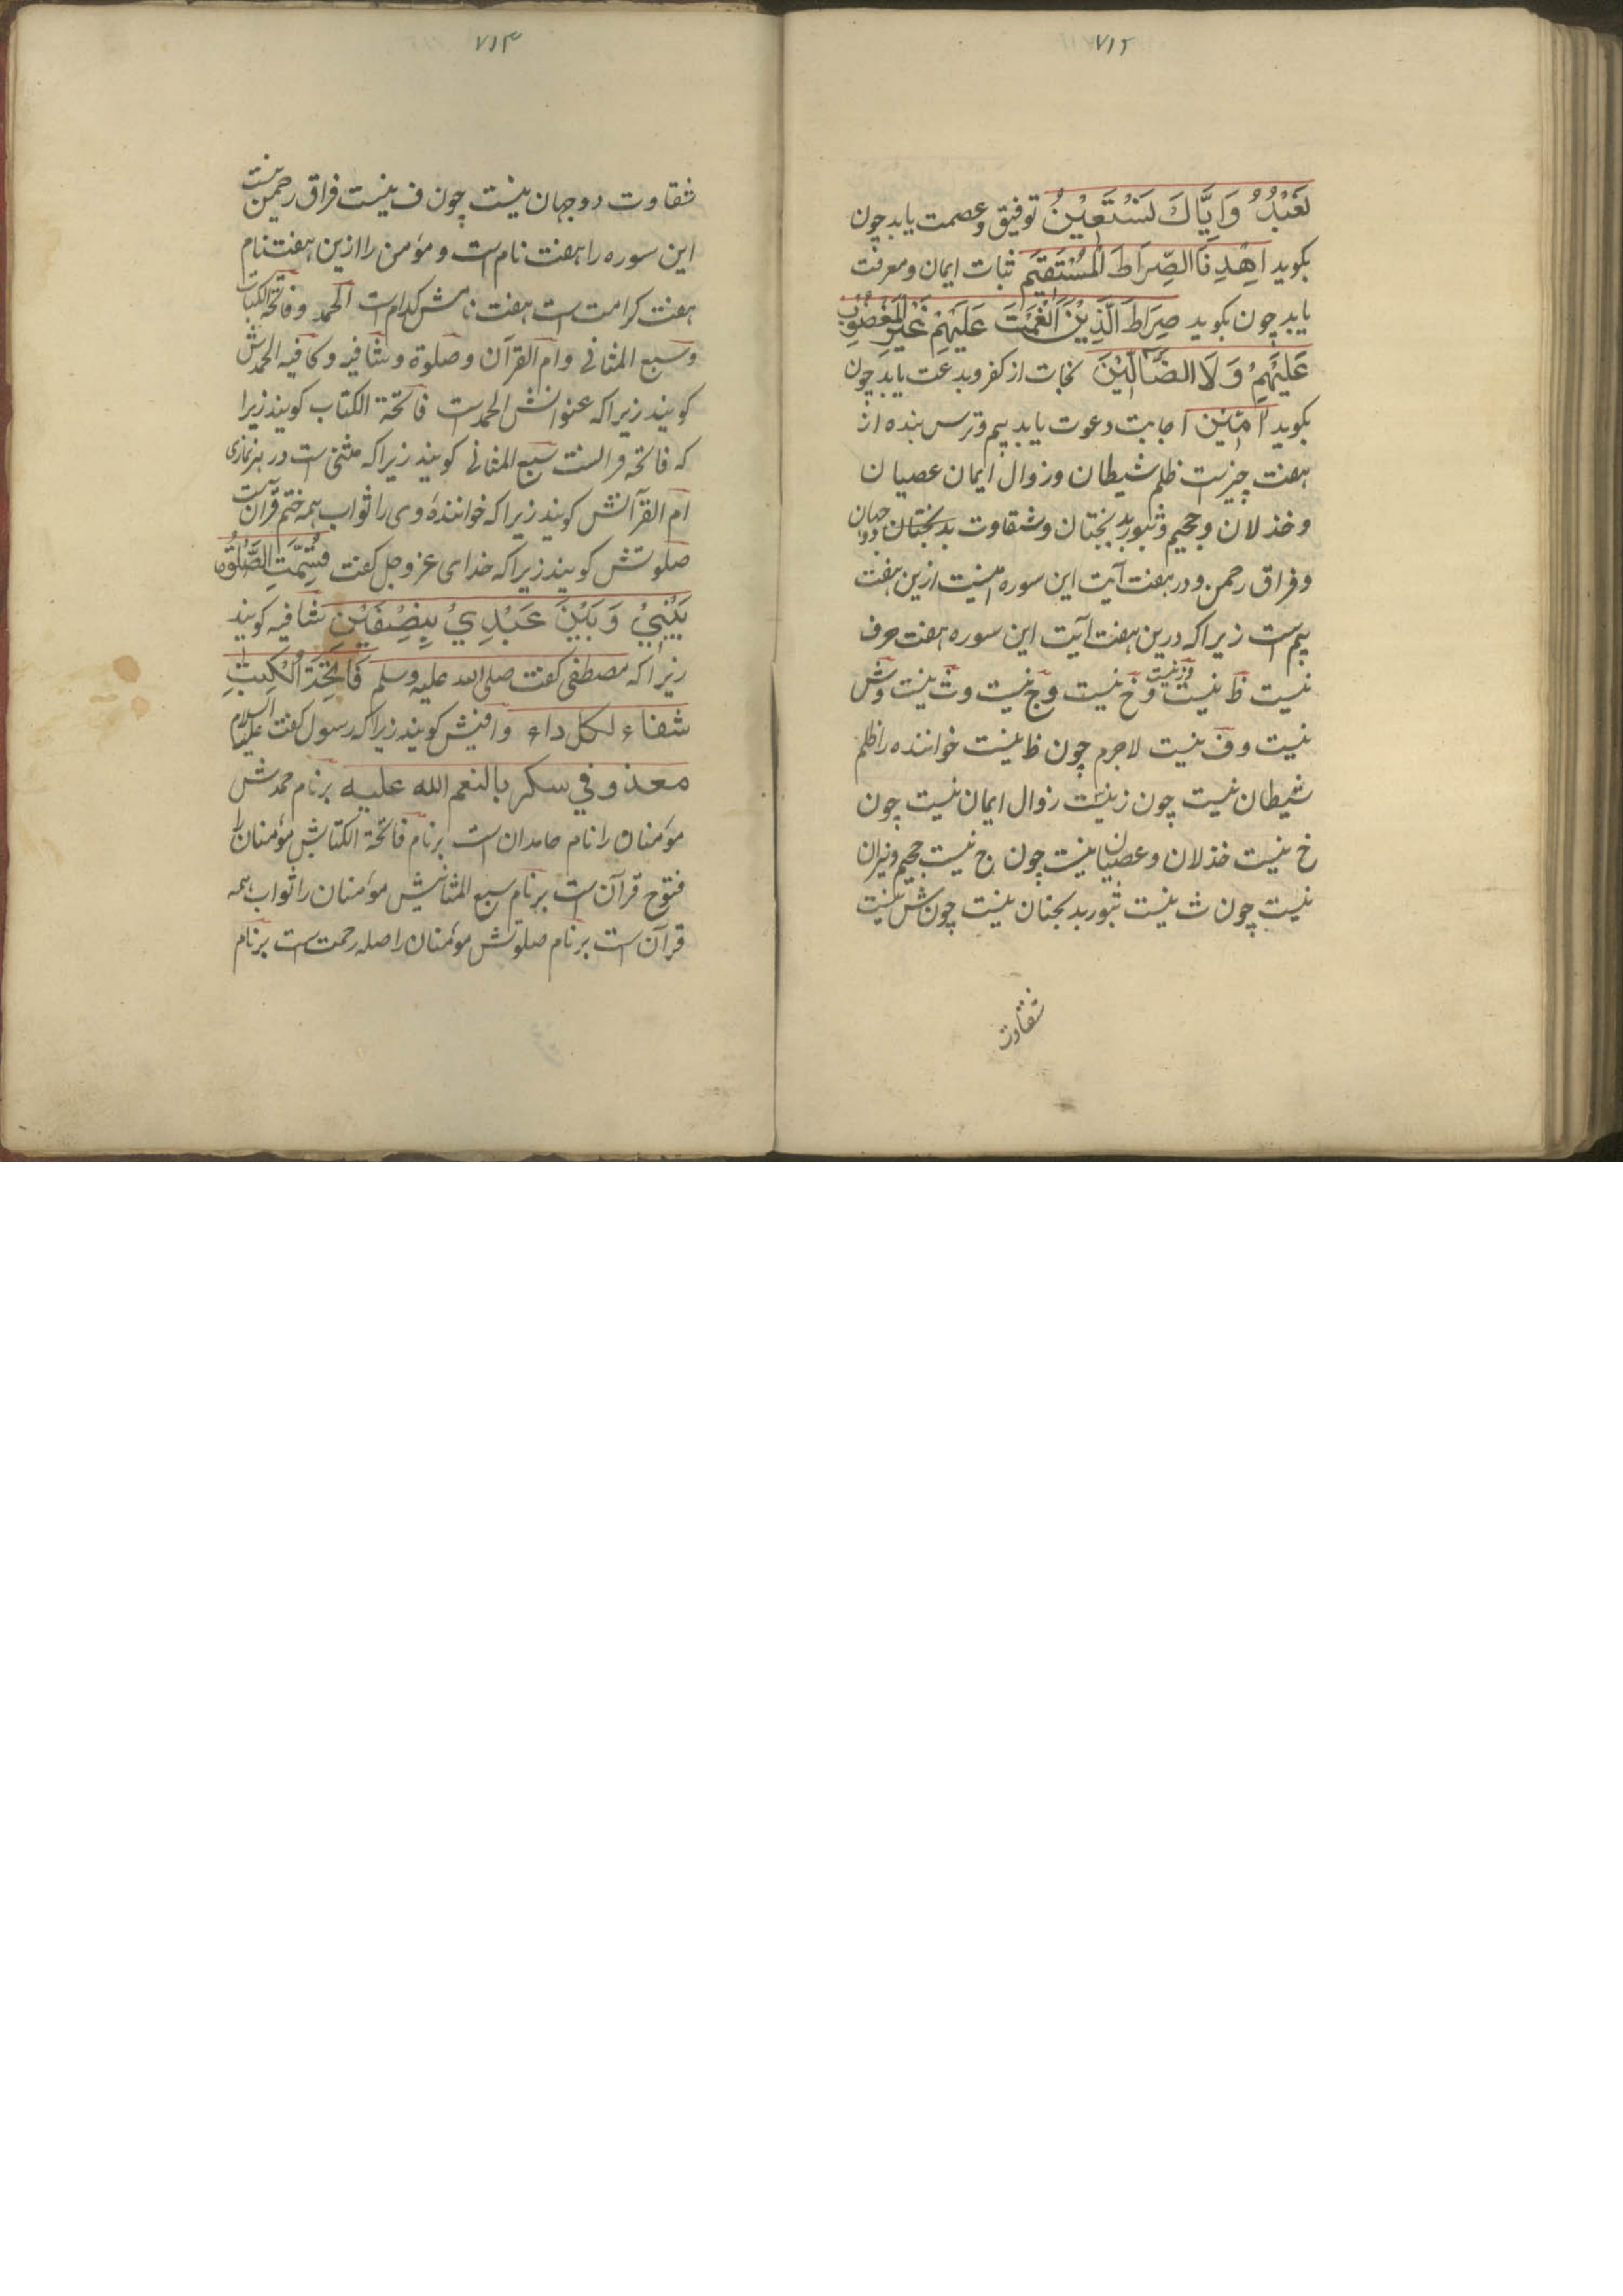 ۷۱۲
نَعْبُدُ وَاِيَّاكَ نَسْتَعِيْنُ توفیق وعصمت یابد چون
بکوید اِهْدِنَا الصِّرَاطَ الْمُسْتَقِيْمَ ثبات ایمان ومعرفت
یابد چون بکوید صِرَاطَ الَّذِيْنَ اَنْعَمْتَ عَلَيْهِمْ غَيْرِ الْمَغْضُوْبِ
عَلَيْهِمْ وَلَا الضَّآلِّيْنَ نجات از کفر وبدعت یابد چون
بکوید اٰمِيْن اجابت دعوت یابد بیم وترس بنده از
هفت چیزست ظلم شیطان وزوال ایمان عصیان
وخذلان وجحیم وثبور بدبختان وشقاوت بدبختان دو جهان
وفراق رحمن ودر هفت آیت این سوره ازین هفت
بیم است زیراکه درین هفت آیت این سوره هفت حرف
نیست ظ نیست وز نیست وخ نیست وج نیست وث نیست وش
نیست وف نیست لاجرم چون ظ نیست خواننده را ظلم
شیطان نیست چون ز نیست زوال ایمان نیست چون
خ نیست خذلان وعصیان نیست چون ج نیست جحیم ونیران
نیست چون ث نیست ثبور بدبختان نیست چون ش نیست
شقاوت
۷۱۳
شقاوت دوجهان نیست چون ف نیست فراق رحمن نیست
این سوره را هفت نام است ومؤمن را ازین هفت نام
هفت کرامت است هفت نامش کدام است الحمد وفاتحة الکتاب
وسبع المثانی وام القرآن وصلوة وشافیه وکافیه الحمدش
کویند زیراکه عنوانش الحمدست فاتحة الکتاب کویند زیرا
که فاتحه قرانست سبع المثانی کویند زیراکه مثنی است در هر نمازی
ام القرآنش کویند زیراکه خوانندهٔ وی را ثواب همه ختم قرآن است
صلوتش کویند زیراکه خدای عز وجل کفت قُسِّمَتِ الصَّلٰوةُ
بَيْنِيْ وَبَيْنَ عَبْدِيْ بِنِصْفَيْنِ شافیه کویند
زیراکه مصطفی کفت صلی الله علیه وسلم فَاتِحَةُ الْكِتٰبِ
شفاء لكل داء کویند زیراکه رسول کفت علیه السلام
الله عليه برنام حمدش
مؤمنان را نام حامدان است برنام فاتحة الکتابش مؤمنان را
فتوح قرآن است برنام سبع المثانیش مؤمنان را ثواب همه
قرآن است برنام صلوتش مؤمنان را صله رحمت است برنام